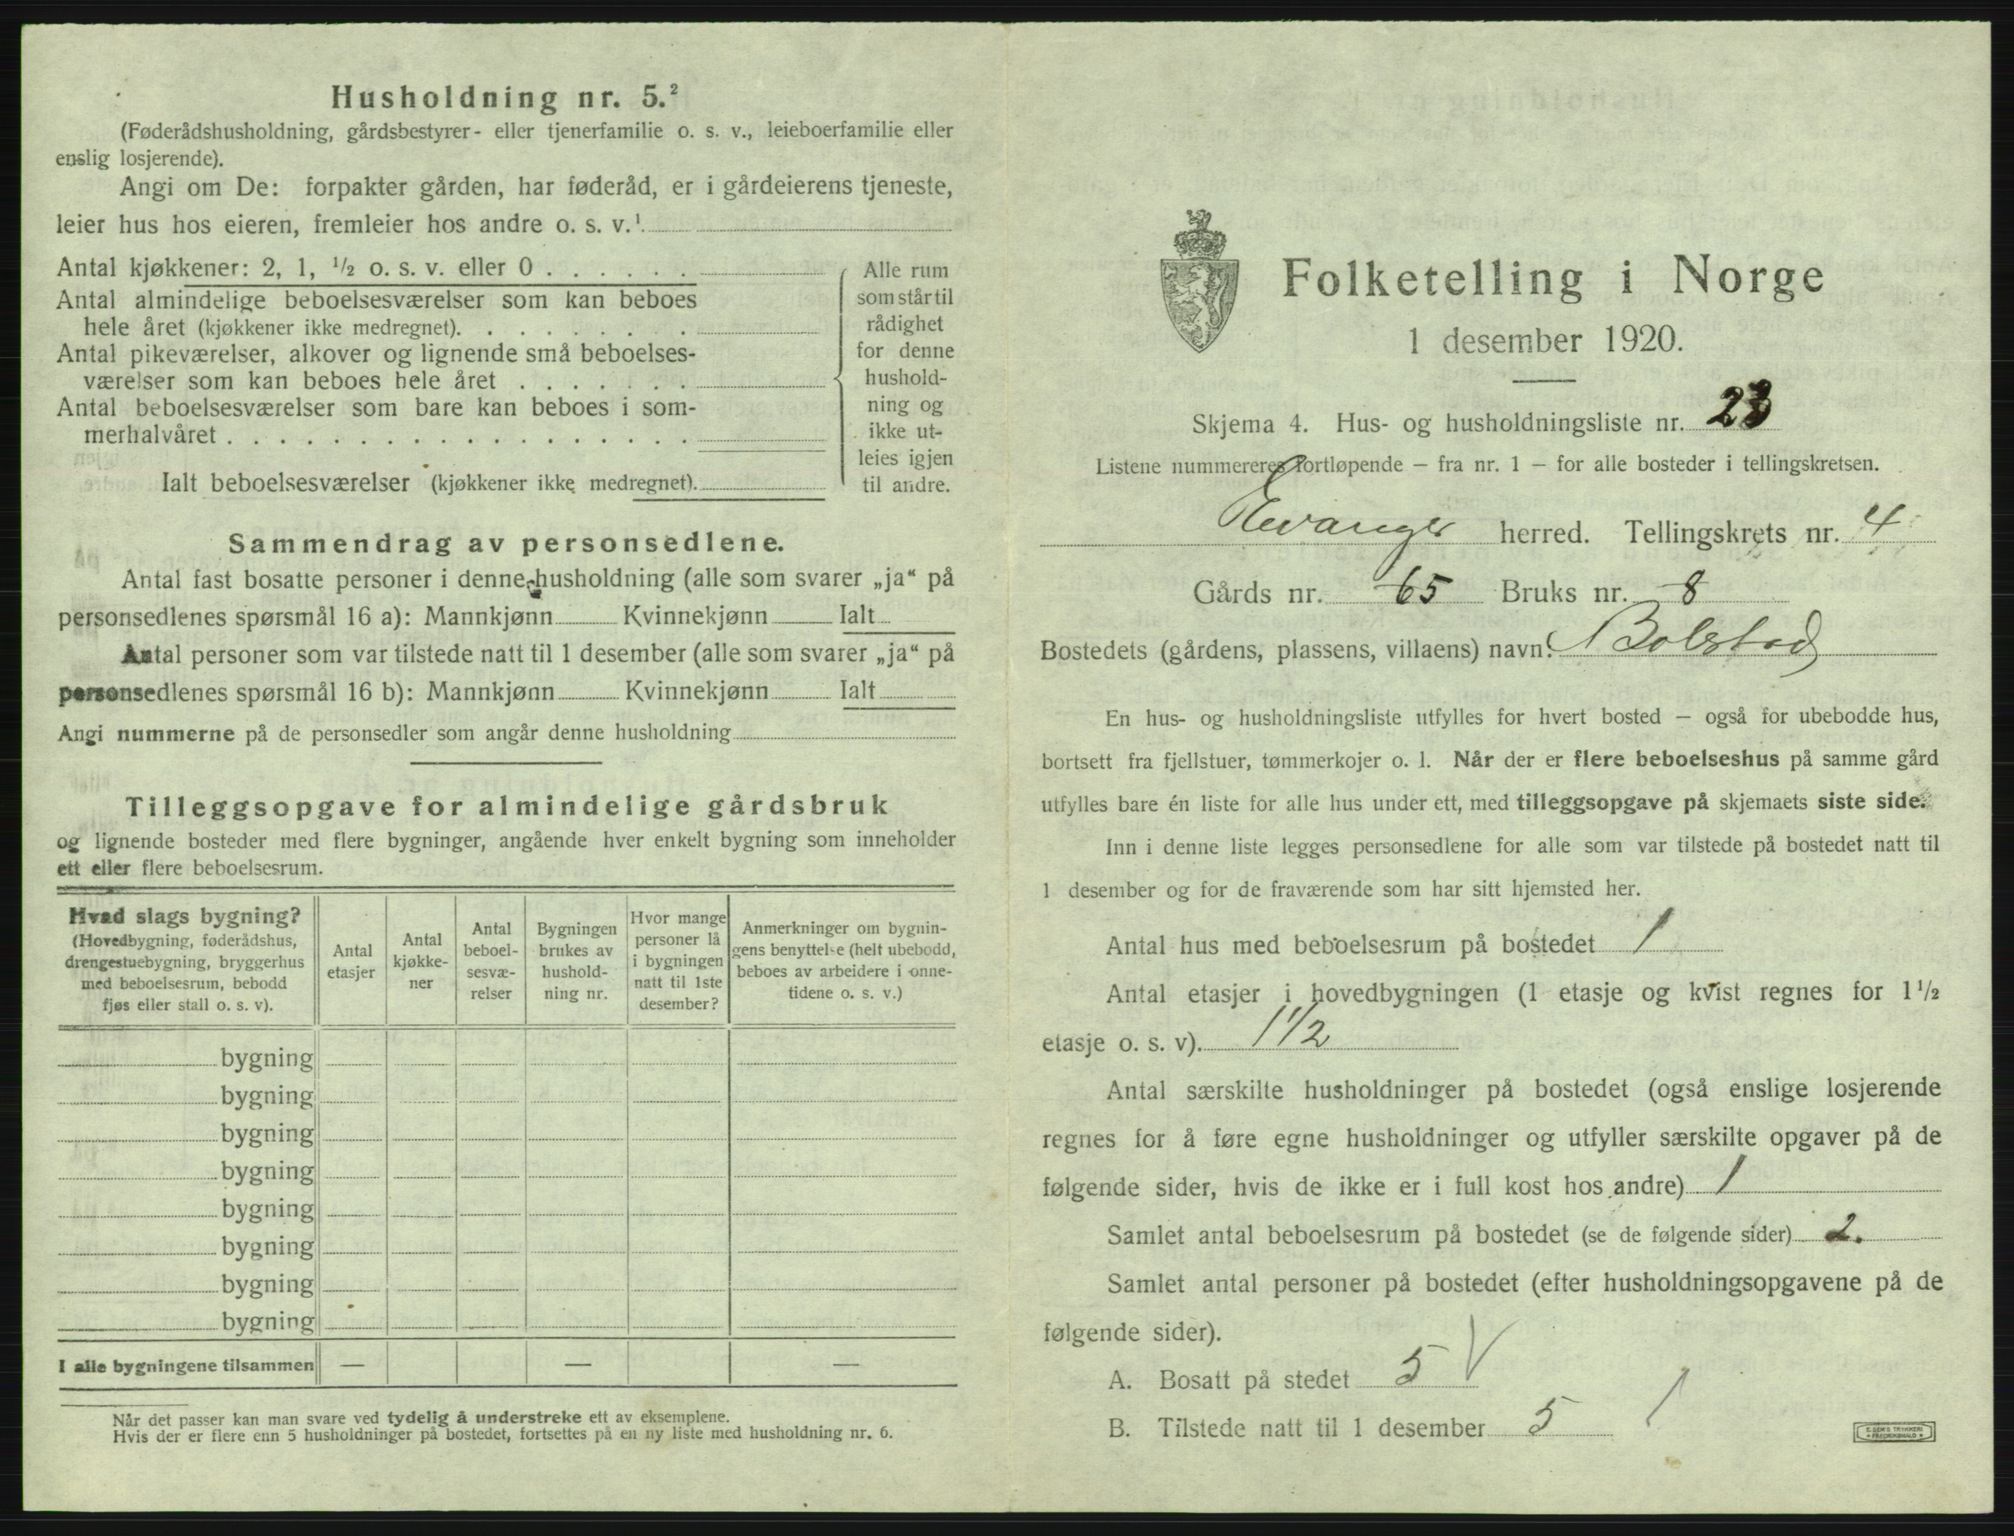 Husholdning nr. 5.²
(Føderådshusholdning, gårdsbestyrer- eller tjenerfamilie o. s. v., leieboerfamilie eller
enslig losjerende).
Angi om De: forpakter gården, har føderåd, er i gårdeierens tjeneste,
leier hus hos eieren, fremleier hos andre o. s. v.¹
Antal kjøkkener: 2, 1, ½ o. s. v. eller 0 . . . . . .
Antal almindelige beboelsesværelser som kan beboes
hele året (kjøkkener ikke medregnet). . . . . . . . .
Antal pikeværelser, alkover og lignende små beboelses-
værelser som kan beboes hele året . . . . . . .
Antal beboelsesværelser som bare kan beboes i som-
merhalvåret . . . . . . . . . . . . . . . . . .
Ialt beboelsesværelser (kjøkkener ikke medregnet).
Alle rum
som står til
rådighet
for denne
hushold-
ning og
ikke ut-
leies igjen
til andre.
Sammendrag av personsedlene.
Antal fast bosatte personer i denne husholdning (alle som svarer „ja“ på
personsedlenes spørsmål 16 a): Mannkjønn Kvinnekjønn Ialt
Antal personer som var tilstede natt til 1 desember (alle som svarer „ja“ på
personsedlenes spørsmål 16 b): Mannkjønn Kvinnekjønn Ialt
Angi nummerne på de personsedler som angår denne husholdning
Tilleggsopgave for almindelige gårdsbruk
og lignende bosteder med flere bygninger, angående hver enkelt bygning som inneholder
ett eller flere beboelsesrum.
Hvad slags bygning?
(Hovedbygning, føderådshus,
drengestuebygning, bryggerhus
med beboelsesrum, bebodd
fjøs eller stall o. s. v).
Antal
etasjer
Antal
kjøkke-
ner
Antal
beboel-
sesvæ-
relser
Bygningen
brukes av
hushold-
ning nr.
Hvor mange
personer lå
i bygningen
natt til 1ste
desember?
Anmerkninger om bygnin-
gens benyttelse (helt ubebodd,
beboes av arbeidere i onne-
tidene o. s. v.)
bygning
bygning
bygning
bygning
bygning
bygning
bygning
bygning
I alle bygningene tilsammen — — —
Når det passer kan man svare ved tydelig å understreke ett av eksemplene.
Hvis der er flere enn 5 husholdninger på bostedet, fortsettes på en ny liste med husholdning nr. 6.
Folketelling i Norge
1 desember 1920.
Skjema 4. Hus- og husholdningsliste nr. 23
Listene nummereres fortløpende – fra nr. 1 – for alle bosteder i tellingskretsen.
Evanger herred. Tellingskrets nr. 4
Gårds nr. 65 Bruks nr. 8
Bostedets (gårdens, plassens, villaens) navn: Bolstad
En hus- og husholdningsliste utfylles for hvert bosted – også for ubebodde hus,
bortsett fra fjellstuer, tømmerkojer o. l. Når der er flere beboelseshus på samme gård
utfylles bare én liste for alle hus under ett, med tilleggsopgave på skjemaets siste side.
Inn i denne liste legges personsedlene for alle som var tilstede på bostedet natt til
1 desember og for de fraværende som har sitt hjemsted her.
Antal hus med beboelsesrum på bostedet 1
Antal etasjer i hovedbygningen (1 etasje og kvist regnes for 1½
etasje o. s. v). 1 1/2
Antal særskilte husholdninger på bostedet (også enslige losjerende
regnes for å føre egne husholdninger og utfyller særskilte opgaver på de
følgende sider, hvis de ikke er i full kost hos andre) 1
Samlet antal beboelsesrum på bostedet (se de følgende sider) 2.
Samlet antal personer på bostedet (efter husholdningsopgavene på de
følgende sider).
A. Bosatt på stedet 5
B. Tilstede natt til 1 desember 5